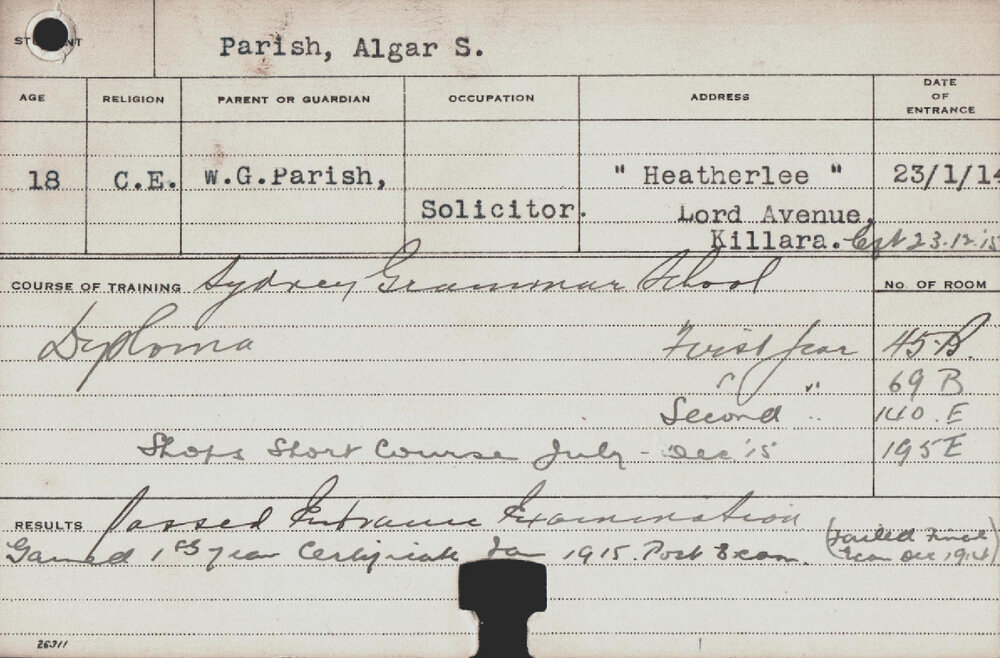 STUDENT Parish, Algar S.
AGE RELIGION PARENT OR GUARDIAN OCCUPATION ADDRESS DATE OF ENTRANCE
18 C.E. W.G.Parish, " Heatherlee " 23/1/14
Solicitor. Lord Avenue,
Killara. 23.12.'15
COURSE OF TRAINING Sydney Grammar School No. OF ROOM
Diploma First Year 45.B.
" " 69 B
Second " 140.E
Shops Short Course July - Dec '15 195E
RESULTS Passed Entrance Examination
Gained 1st Year Certificate Jan 1915. Post Exam. (Failed Final
Exam Dec 1914)
26911